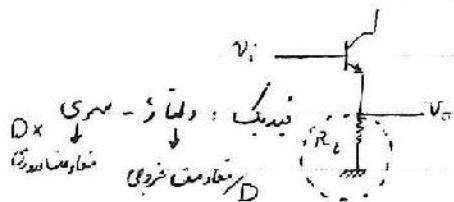 Vi
Vo
RL
فیدبک : ولتاژ - سری
D×
↓ ↓
مقاومت ورودی
مقاومت خروجی /D